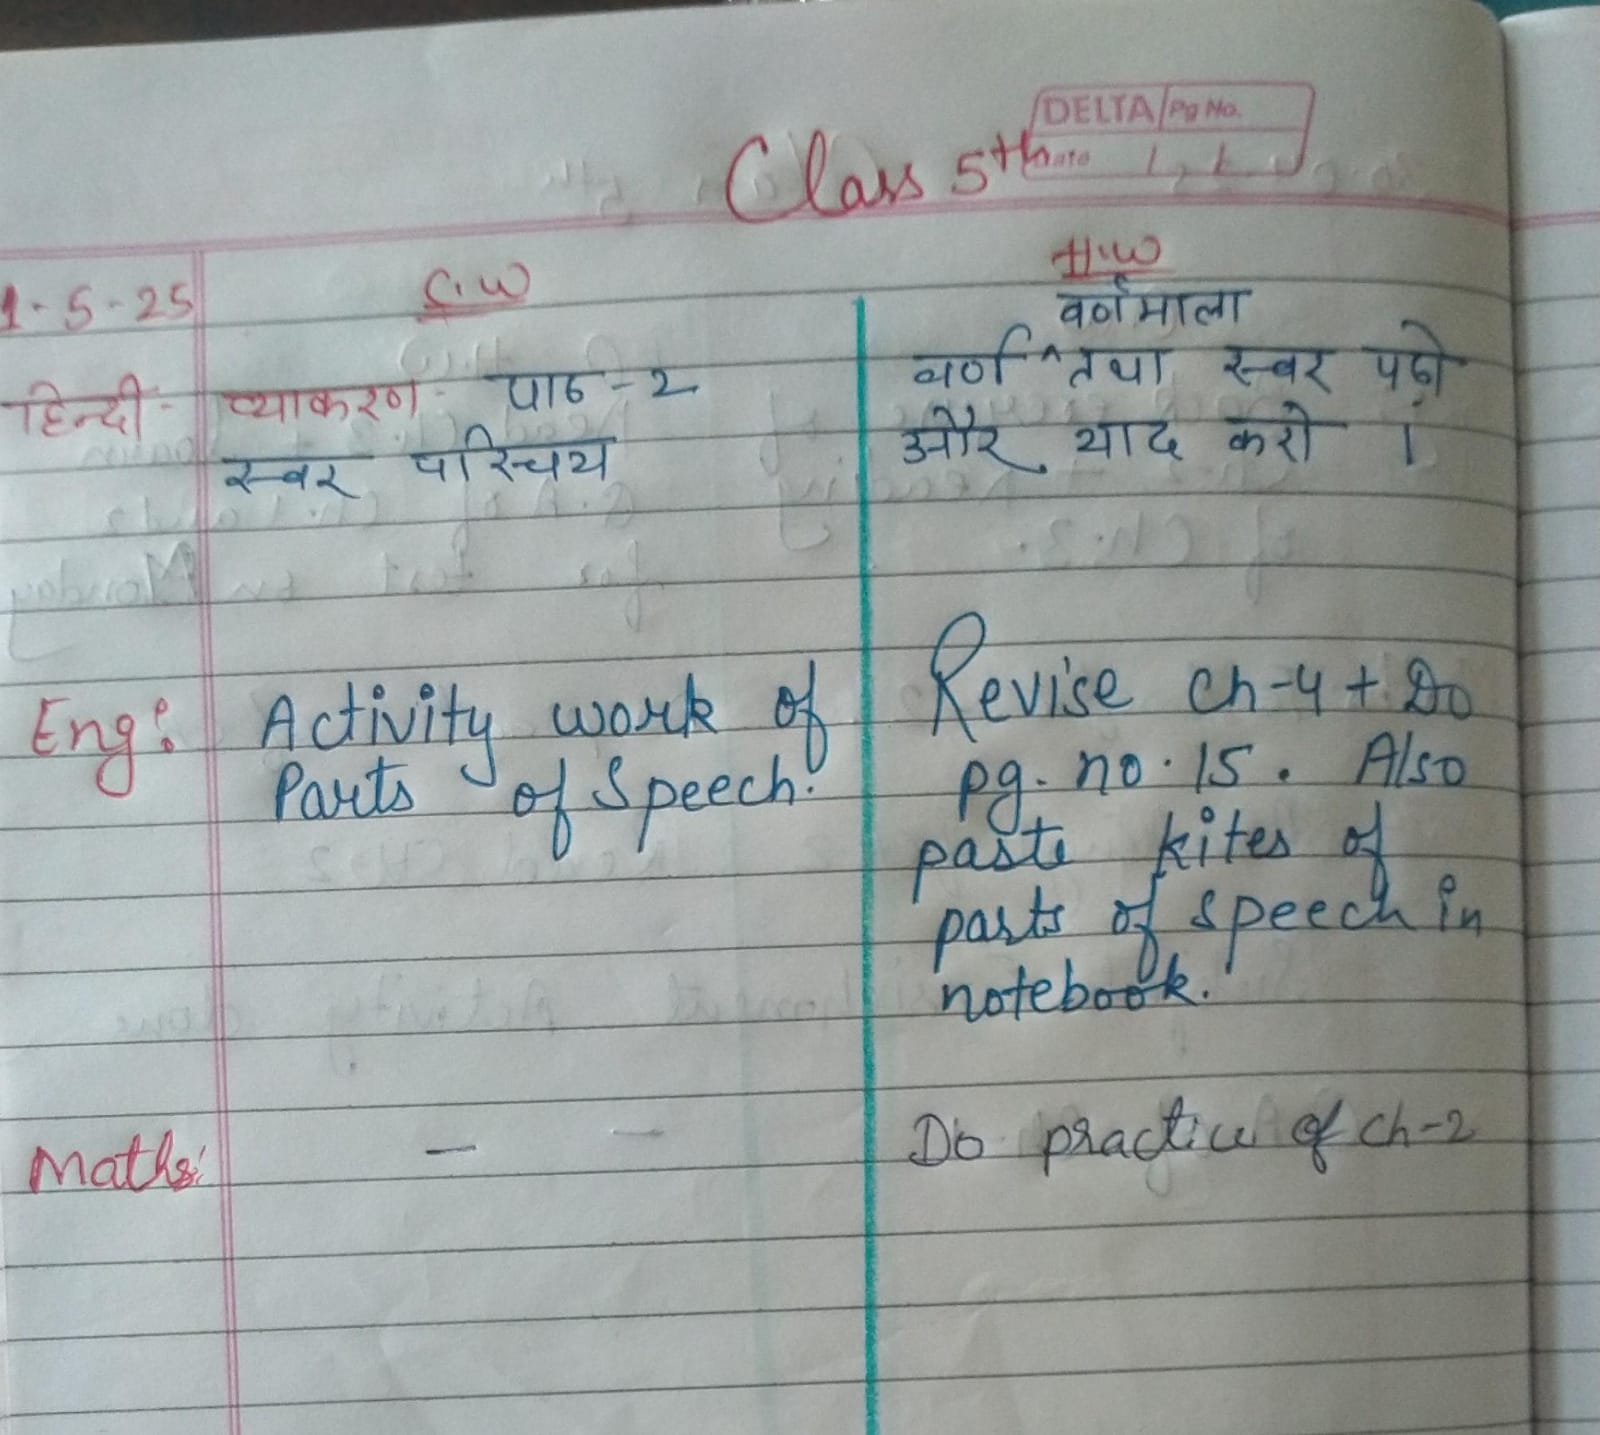 DELTA Pg No.
Date
Class 5th
1-5-25 C.W H.W
वर्णमाला
हिन्दी- व्याकरण- पाठ-2 वर्ण ^ तथा स्वर पढ़ो
स्वर परिचय और याद करो ।
Eng: Activity work of Revise Ch-4 + Do
Parts of Speech. pg. no. 15. Also
paste kites of
parts of speech in
notebook.
Maths: — — Do practice of Ch-2